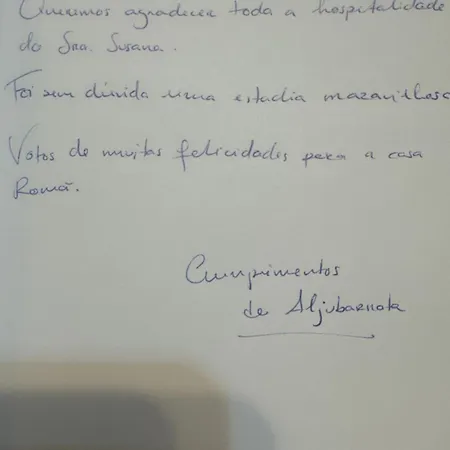 Queremos agradecer toda a hospitalidade
do Sra. Susana.
Foi sem dúvida uma estadia maravilhosa
Votos de muitas felicidades para a casa
Romã.
Cumprimentos
de Aljubarrota